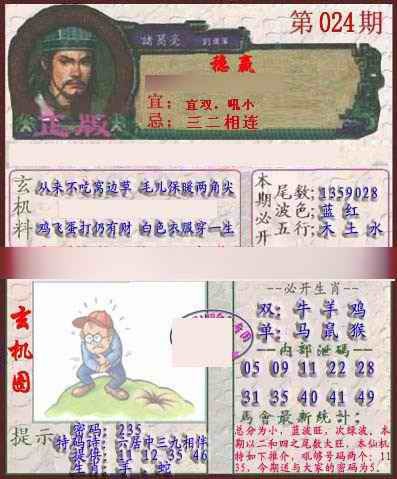 第024期
諸葛亮
稳赢
宜：宜双，吼小
忌：三二相连
正版
玄机料
从来不吃窝边草 毛儿保暖两角尖
鸡飞蛋打仍有财 白色衣服穿一生
本期必开
尾数：1359028
波色：蓝 红
五行：木 土 水
玄机图
必开生肖
双：牛 羊 鸡
单：马 鼠 猴
内部泄码
05 09 11 22 28
31 35 40 41 49
馬會最新统计：
总分为小，蓝波旺，次绿波，本
期以二和四之尾数大旺，本仙机
特如下推介，吼够号码两个：11
35，今期送与大家的密码为5．
提示
密码：235
特码诗：六居中三九相伴
提倍：11 12 35 46
生肖：羊．蛇